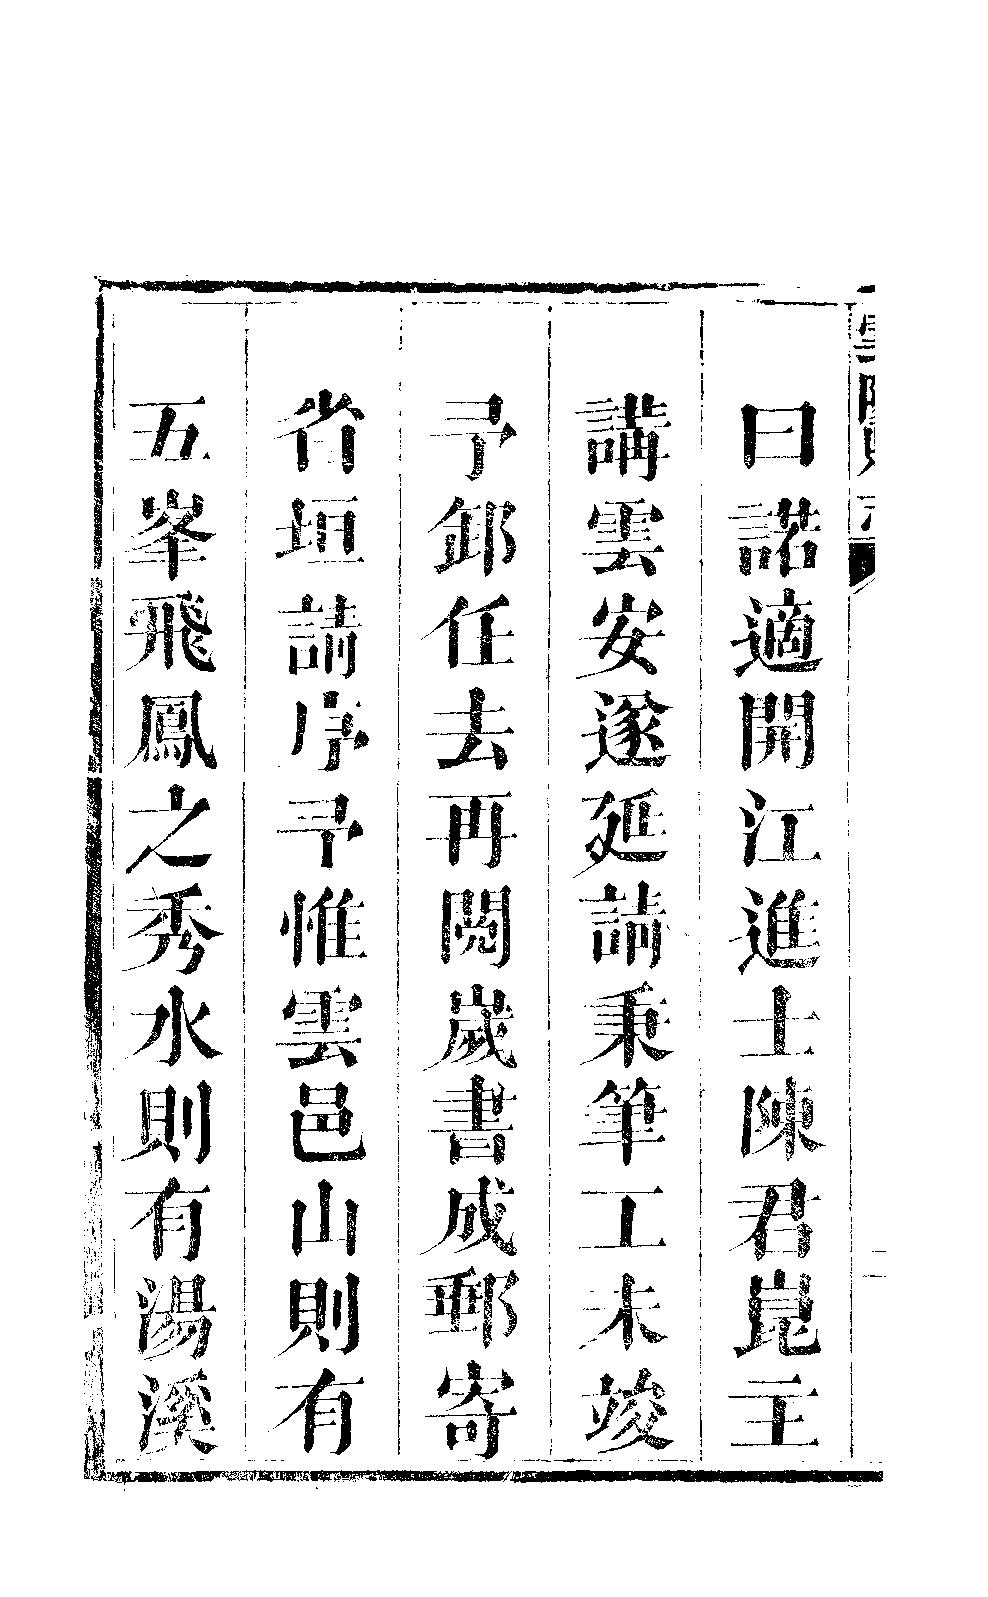 曰諾適開江進士陳君崑主
講雲安遂延請秉筆工未竣
予卸任去再閱嵗書成郵寄
省垣請序予惟雲邑山則有
五峯飛鳳之秀水則有湯溪